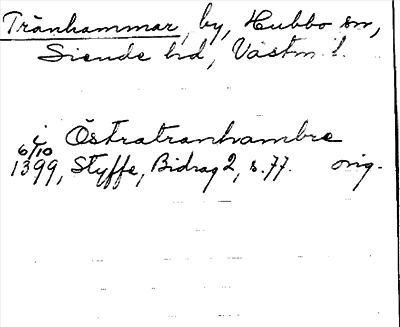 Tränhammar, by, Hubbo sn,
Siende hd, Västm. l.
i Östratranhambre
6/10
1399, Styffe, Bidrag 2, s. 77. orig.